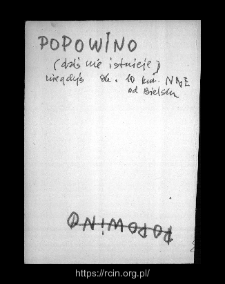 POPOWINO
(dziś nie istnieje)
ok. 10 km. NNE
od Bielska
POPOWINO
https://rcin.org.pl/